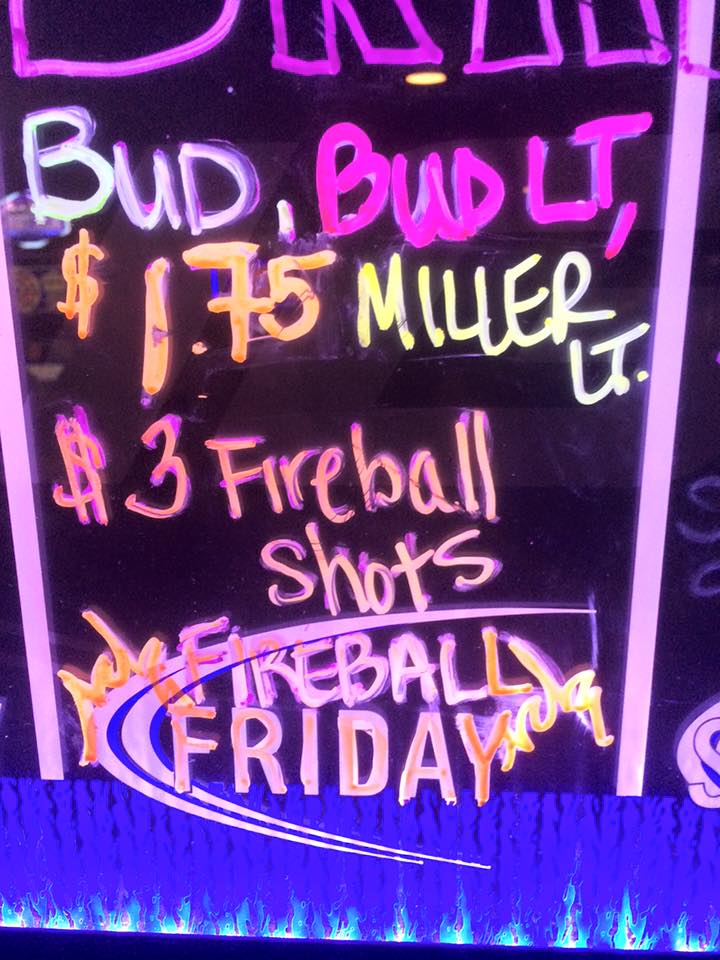 BUD, BUD LT,
$1.75 MILLER
LT.
$3 Fireball
Shots
FIREBALL
FRIDAY